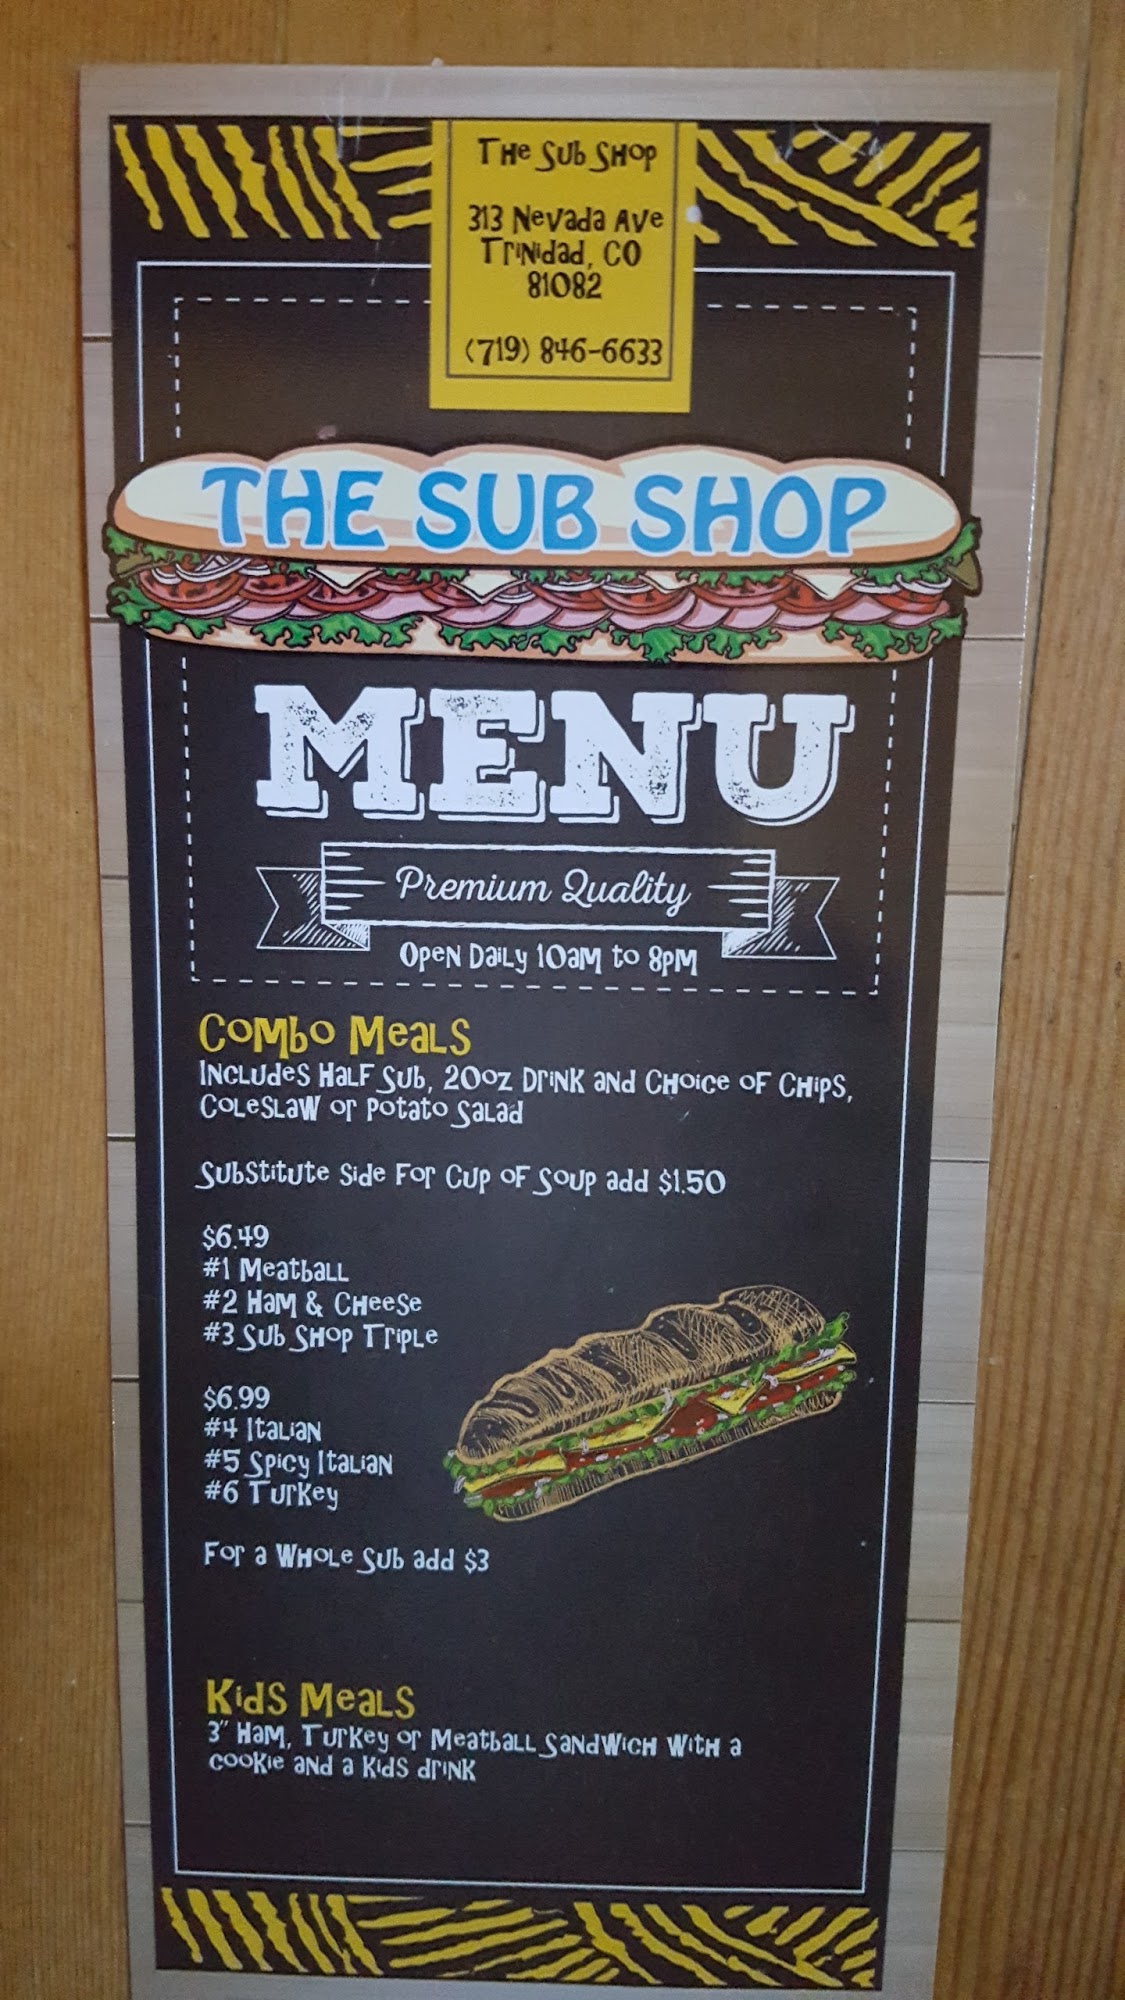 The Sub Shop
313 Nevada Ave
Trinidad, CO
81082
(719) 846-6633
THE SUB SHOP
MENU
Premium Quality
Open Daily 10am to 8pm
Combo Meals
Includes Half Sub, 20oz Drink and Choice of Chips,
Coleslaw or Potato Salad
Substitute Side For Cup of Soup add $1.50
$6.49
#1 Meatball
#2 Ham & Cheese
#3 Sub Shop Triple
$6.99
#4 Italian
#5 Spicy Italian
#6 Turkey
For a Whole Sub add $3
Kids Meals
3" Ham, Turkey or Meatball Sandwich With a
cookie and a kids drink